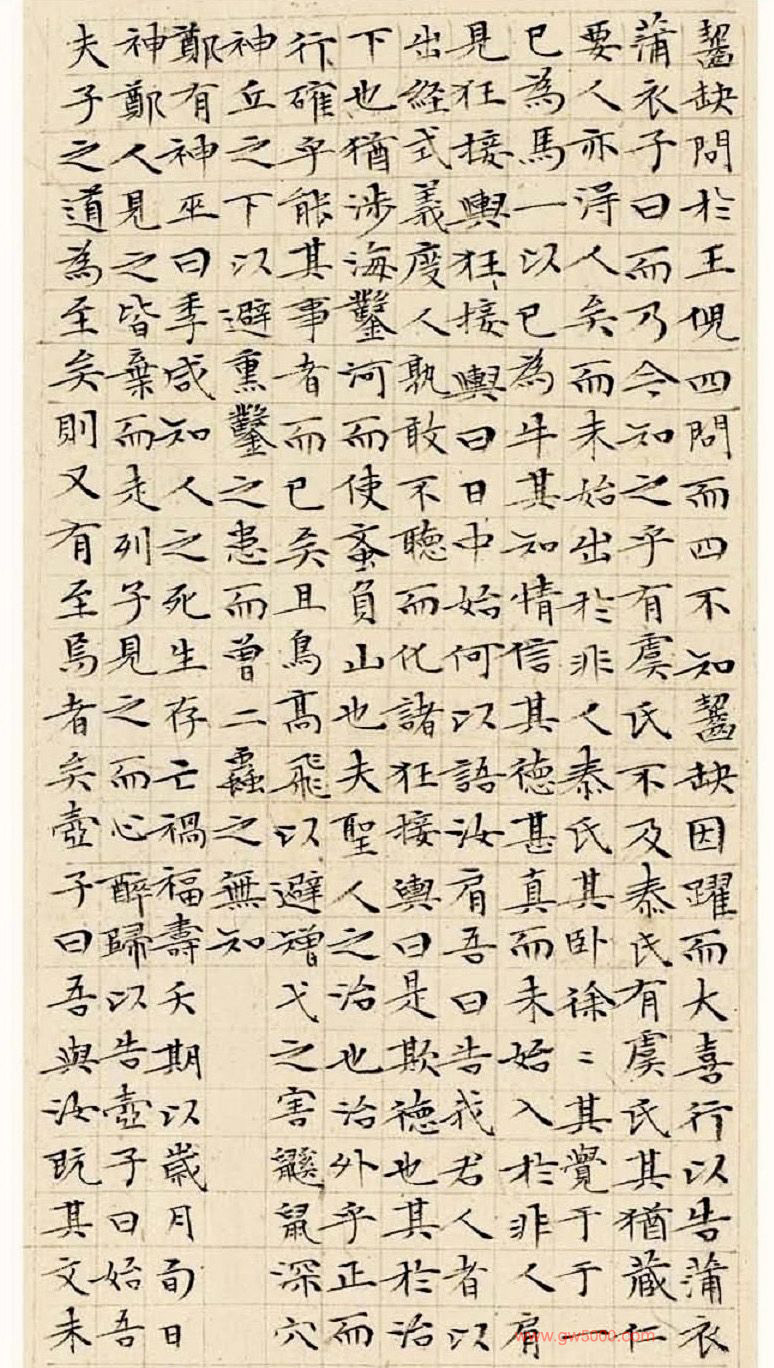 齧缺問於王倪四問而四不知齧缺因躍而大喜行以告蒲衣
蒲衣子曰而乃今知之乎有虞氏不及泰氏有虞氏其猶藏仁
要人亦得人矣而未始出於非人泰氏其卧徐〻其覺于于一
已為馬一以已為牛其知情信其德甚真而未始入於非人肩
見狂接輿狂接輿曰日中始何以語汝肩吾曰告我君人者以
出経式義度人孰敢不聽而化諸狂接輿曰是欺德也其於治
下也猶涉海鑿河而使蚉負山也夫聖人之治也治外乎正而
行確乎能其事者而已矣且鳥高飛以避矰弋之害鼷鼠深穴
神丘之下以避熏鑿之患而曾二蟲之無知
鄭有神巫曰季咸知人之死生存亡禍福壽夭期以歲月旬日
神鄭人見之皆棄而走列子見之而心醉歸以告壺子曰始吾
夫子之道為至矣則又有至焉者矣壺子曰吾與汝既其文未
www.gw5000.com